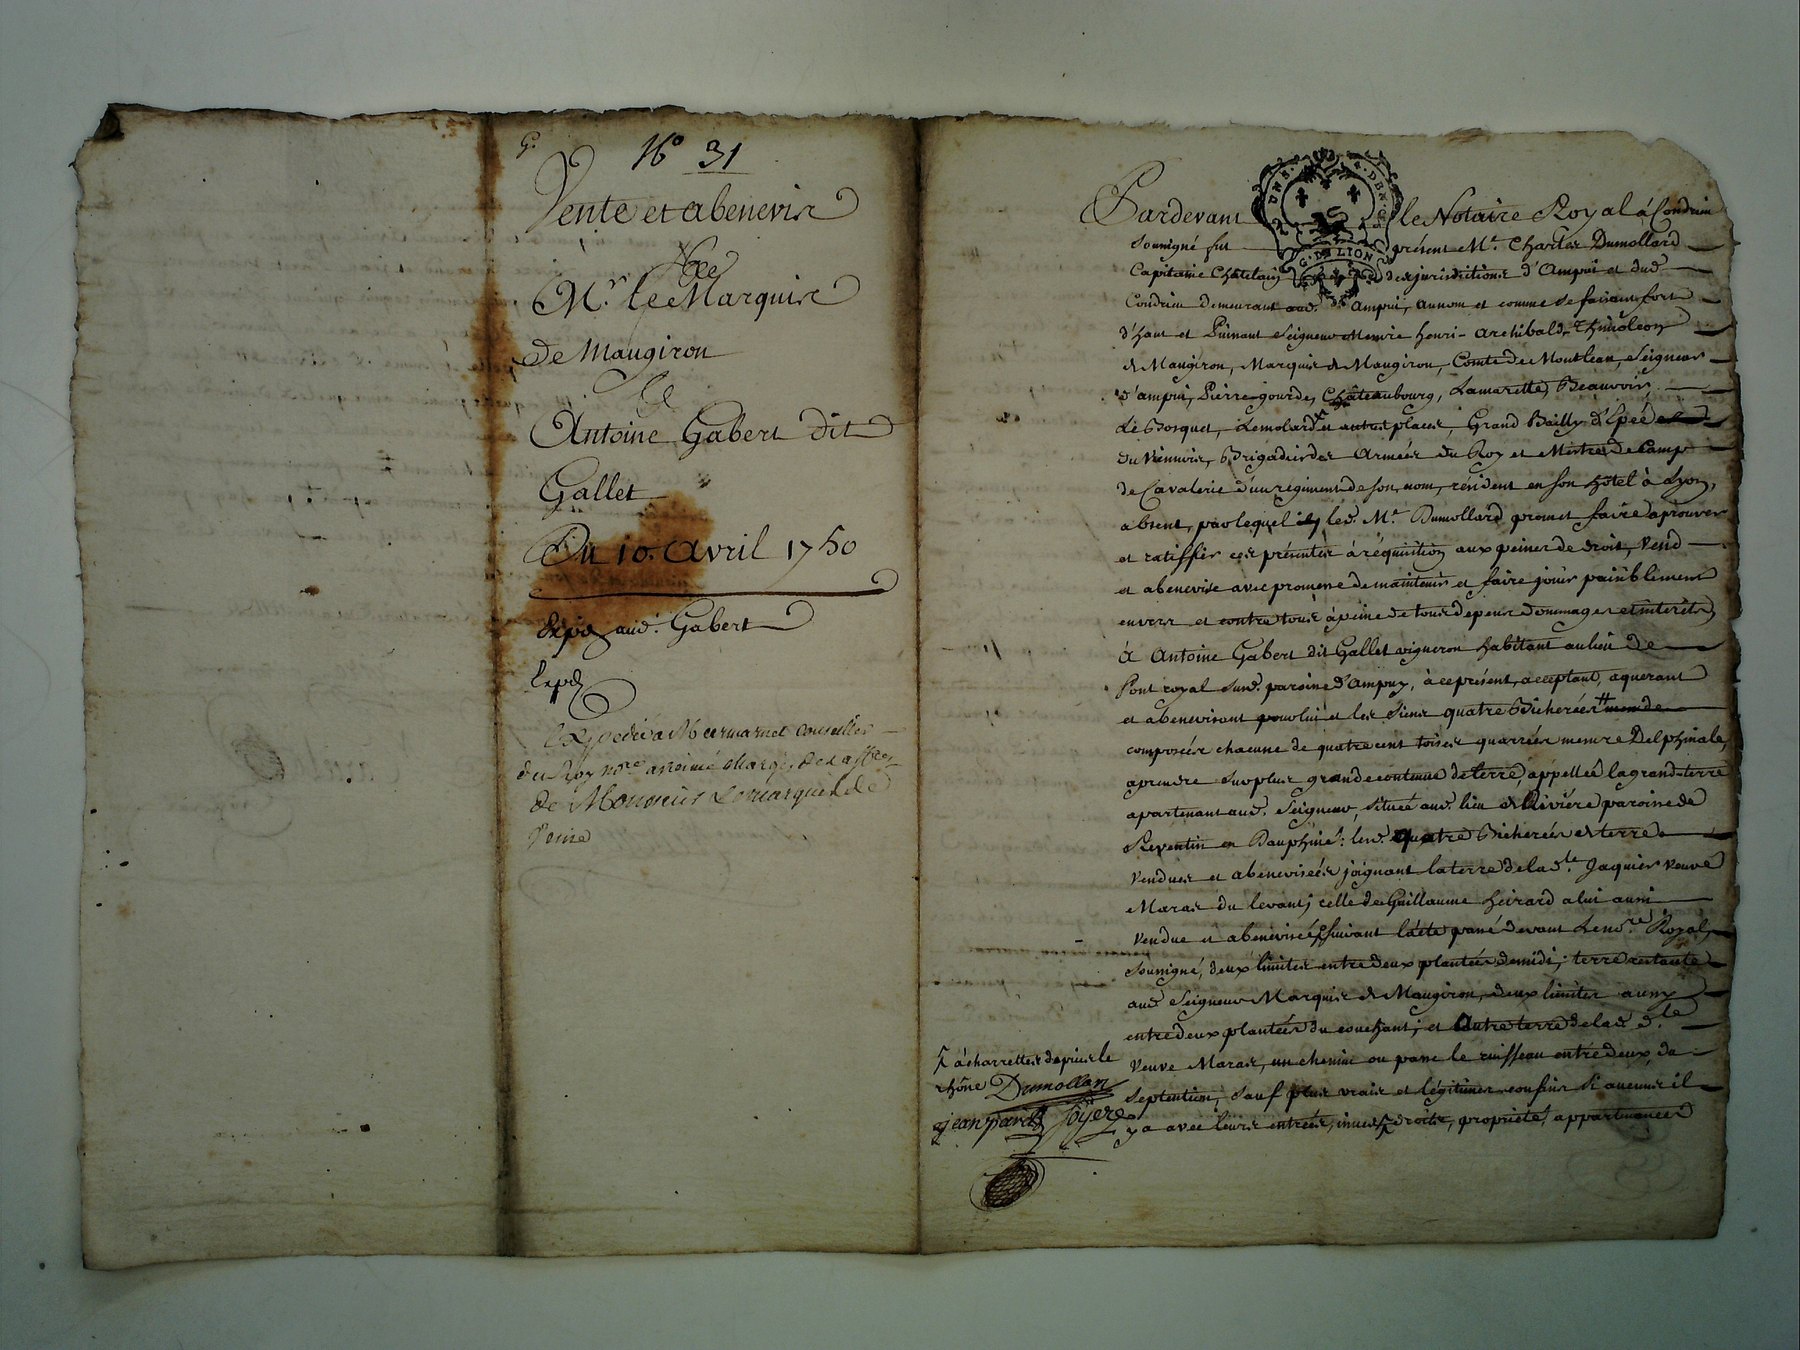 G.
N° 31
Vente et abenevis
Mr. le Marquis
de Maugiron
Antoine Gabert dit
Gallet
Du 10. Avril 1750
Expe aud. Gabert
Expe
Expedié a Me conseiller
du Roy nore
de Monsieur Le marquis de
Veine
Pardevant le Notaire Royal à Condrieu
soussigné fut présent Mr. Charles Dumollard
Capitaine Châtelain des jurisdictions d'Ampuis et dud.
Condrieu demeurant aud. Ampuis, au nom et comme se faisant fort
d'haut et Puissant Seigneur Messire henri-archibald-Thimoleon
de Maugiron, Marquis de Maugiron, Comte de Montlean, Seigneur
d'ampuis, Pierre-gourde, Châteaubourg, Lamarette, Beauvoir,
Le Bosquet, Lemolard et autres places, Grand Bailly d'Epée
du Viennois, Brigadier des Armées du Roy et Mestre de Camp
de Cavalerie d'un regiment de son nom, résident en son hôtel à Lyon,
absent, par lequel led. Mr. Dumollard promet faire aprouver
et ratiffier ces présentes à réquisition aux peines de droit, Vend
et abenevise avec promesse de maintenir et faire jouir paisiblement
envers et contre tous à peine de tous depens dommages et interêts
à Antoine Gabert dit Gallet vigneron habitant au lieu de
Pont royal susd. paroisse d'ampuy, à ce présent, acceptant, aquerant
et abenevisant pour lui et les siens quatre Bicherées
composées chacune de quatre cent toises quarrées mesure Delphinale,
aprendre sur plus grande contenue de terre, appellée la grand-terre
apartenant aud. Seigneur, située aud. lieu de Rivière paroisse de
Reventin en Dauphiné: lesd. quatre Bicherées de terre
vendues et abenevisées joignant la terre de lad. dle Jaquier veuve
Maras du levant; celle de Guillaume heirard a lui aussi
vendue et abenevisée suivant l'acte passé devant Le nore. Royal
soussigné, deux limites entredeux plantées de midi; terre restante
aud. Seigneur Marquis de Maugiron, deux limites aussy
entredeux plantées du couchant; et autre terre de lad. dle
veuve Maras, un chemin ou passe le ruisseau entredeux, de
septentrion, sauf plus vrais et légitimes confins si aucuns il
y a avec leurs entrées, issues, droits, propriété, appartenances
à charrettes depuis le
rhône Dumollard
jean pavet Joyere
G. DE LION